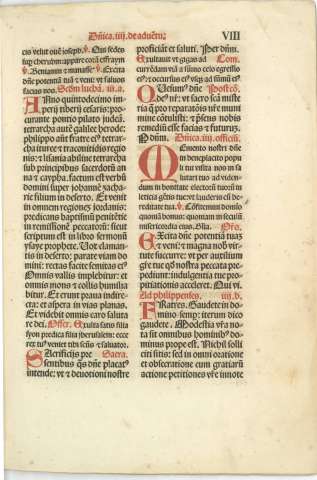 Dñica.iij.de aduētu;
VIII
cis velut oué ioseph.℣. Qui sedes
sup cherubim:appare corā effrayn
.℣.Beniamin & manasse ℣ Excita
dñe potentiā tuā & veni: vt saluos
facias nos. Scdm luchā.iij.a.
Anno quintodecimo im-
perij tiberij cesaris: pro-
curante pontio pilato iudeā.
tetrarcha autē galilee herode:
philippo aūt fratre ei⁹ tetrar-
cha ituree & traconitidis regio
nis: & lisania abiline tetrarcha
sub principibus sacerdotū an
na & caypha. factum est verbū
domini super iohannē zacha-
rie filium in deserto. Et venit
in omnem regionez iordanis:
predicans baptismū penitētie
in remissionē peccatorū: sicut
scriptum est in libro sermonū
ysaye prophete. Vox claman-
tis in deserto: parate viam do
mini: rectas facite semitas ei⁹
Omnis vallis implebitur: et
omnis mons & collis humilia
bitur. Et erunt praua in dire-
cta: et aspera in vias planas.
Et videbit omnis caro saluta
re dei. Offer. Exulta satis filia
syon predica filia hierusalem: ecce
rex tu⁹ veniet tibi scūs & saluator.
Sacrificijs pre Sacra.
sentibus q̄s dñe placat⁹
intende: vt & deuotioni nostre
proficiāt et saluti. Per dñm.
Exultauit vt gigas ad Com.
currēdam viā a sūmo celo egressio
ei⁹: & occursus ei⁹ vsq; ad sūmū ei⁹
Quesum⁹ dñe Postcō.
de⁹ nr̄: vt sacro sctā myste
ria q̄ pro reparatōis nr̄e muni
mine cōtulisti: & p̄sens nobis
remediū esse facias & futuruz.
P dñm. Dñica.iiij.officiū.
Memento nostri dñe
in beneplacito popu
li tui visita nos in sa
lutari tuo ad viden-
dum in bonitate electorū tuorū in
letitia gētis tue vt lauderis cū he-
reditate tua.℣. Cōfitemini domino
quoniā bonus: quoniam in seculū
misericordia eius. Gloria. Orō.
Excita dñe potentiā tuaz
& veni: & magna nob̄ vir-
tute succurre: vt per auxiliuȝ
gr̄e tue qd̄ nostra peccata pre-
pediunt: indulgentia tue pro-
pitiationis acceleret. Qui vi.
Ad philippenses. iiij.b.
Fratres. Gaudete in do-
mino semp: iterum dico
gaudete. Modestia vr̄a no-
ta sit omnibus hominib⁹ do-
minus prope est. Nichil solli
citi sitis: sed in omni oratione
et obsecratione cum gratiarū
actione petitiones vr̄e innote